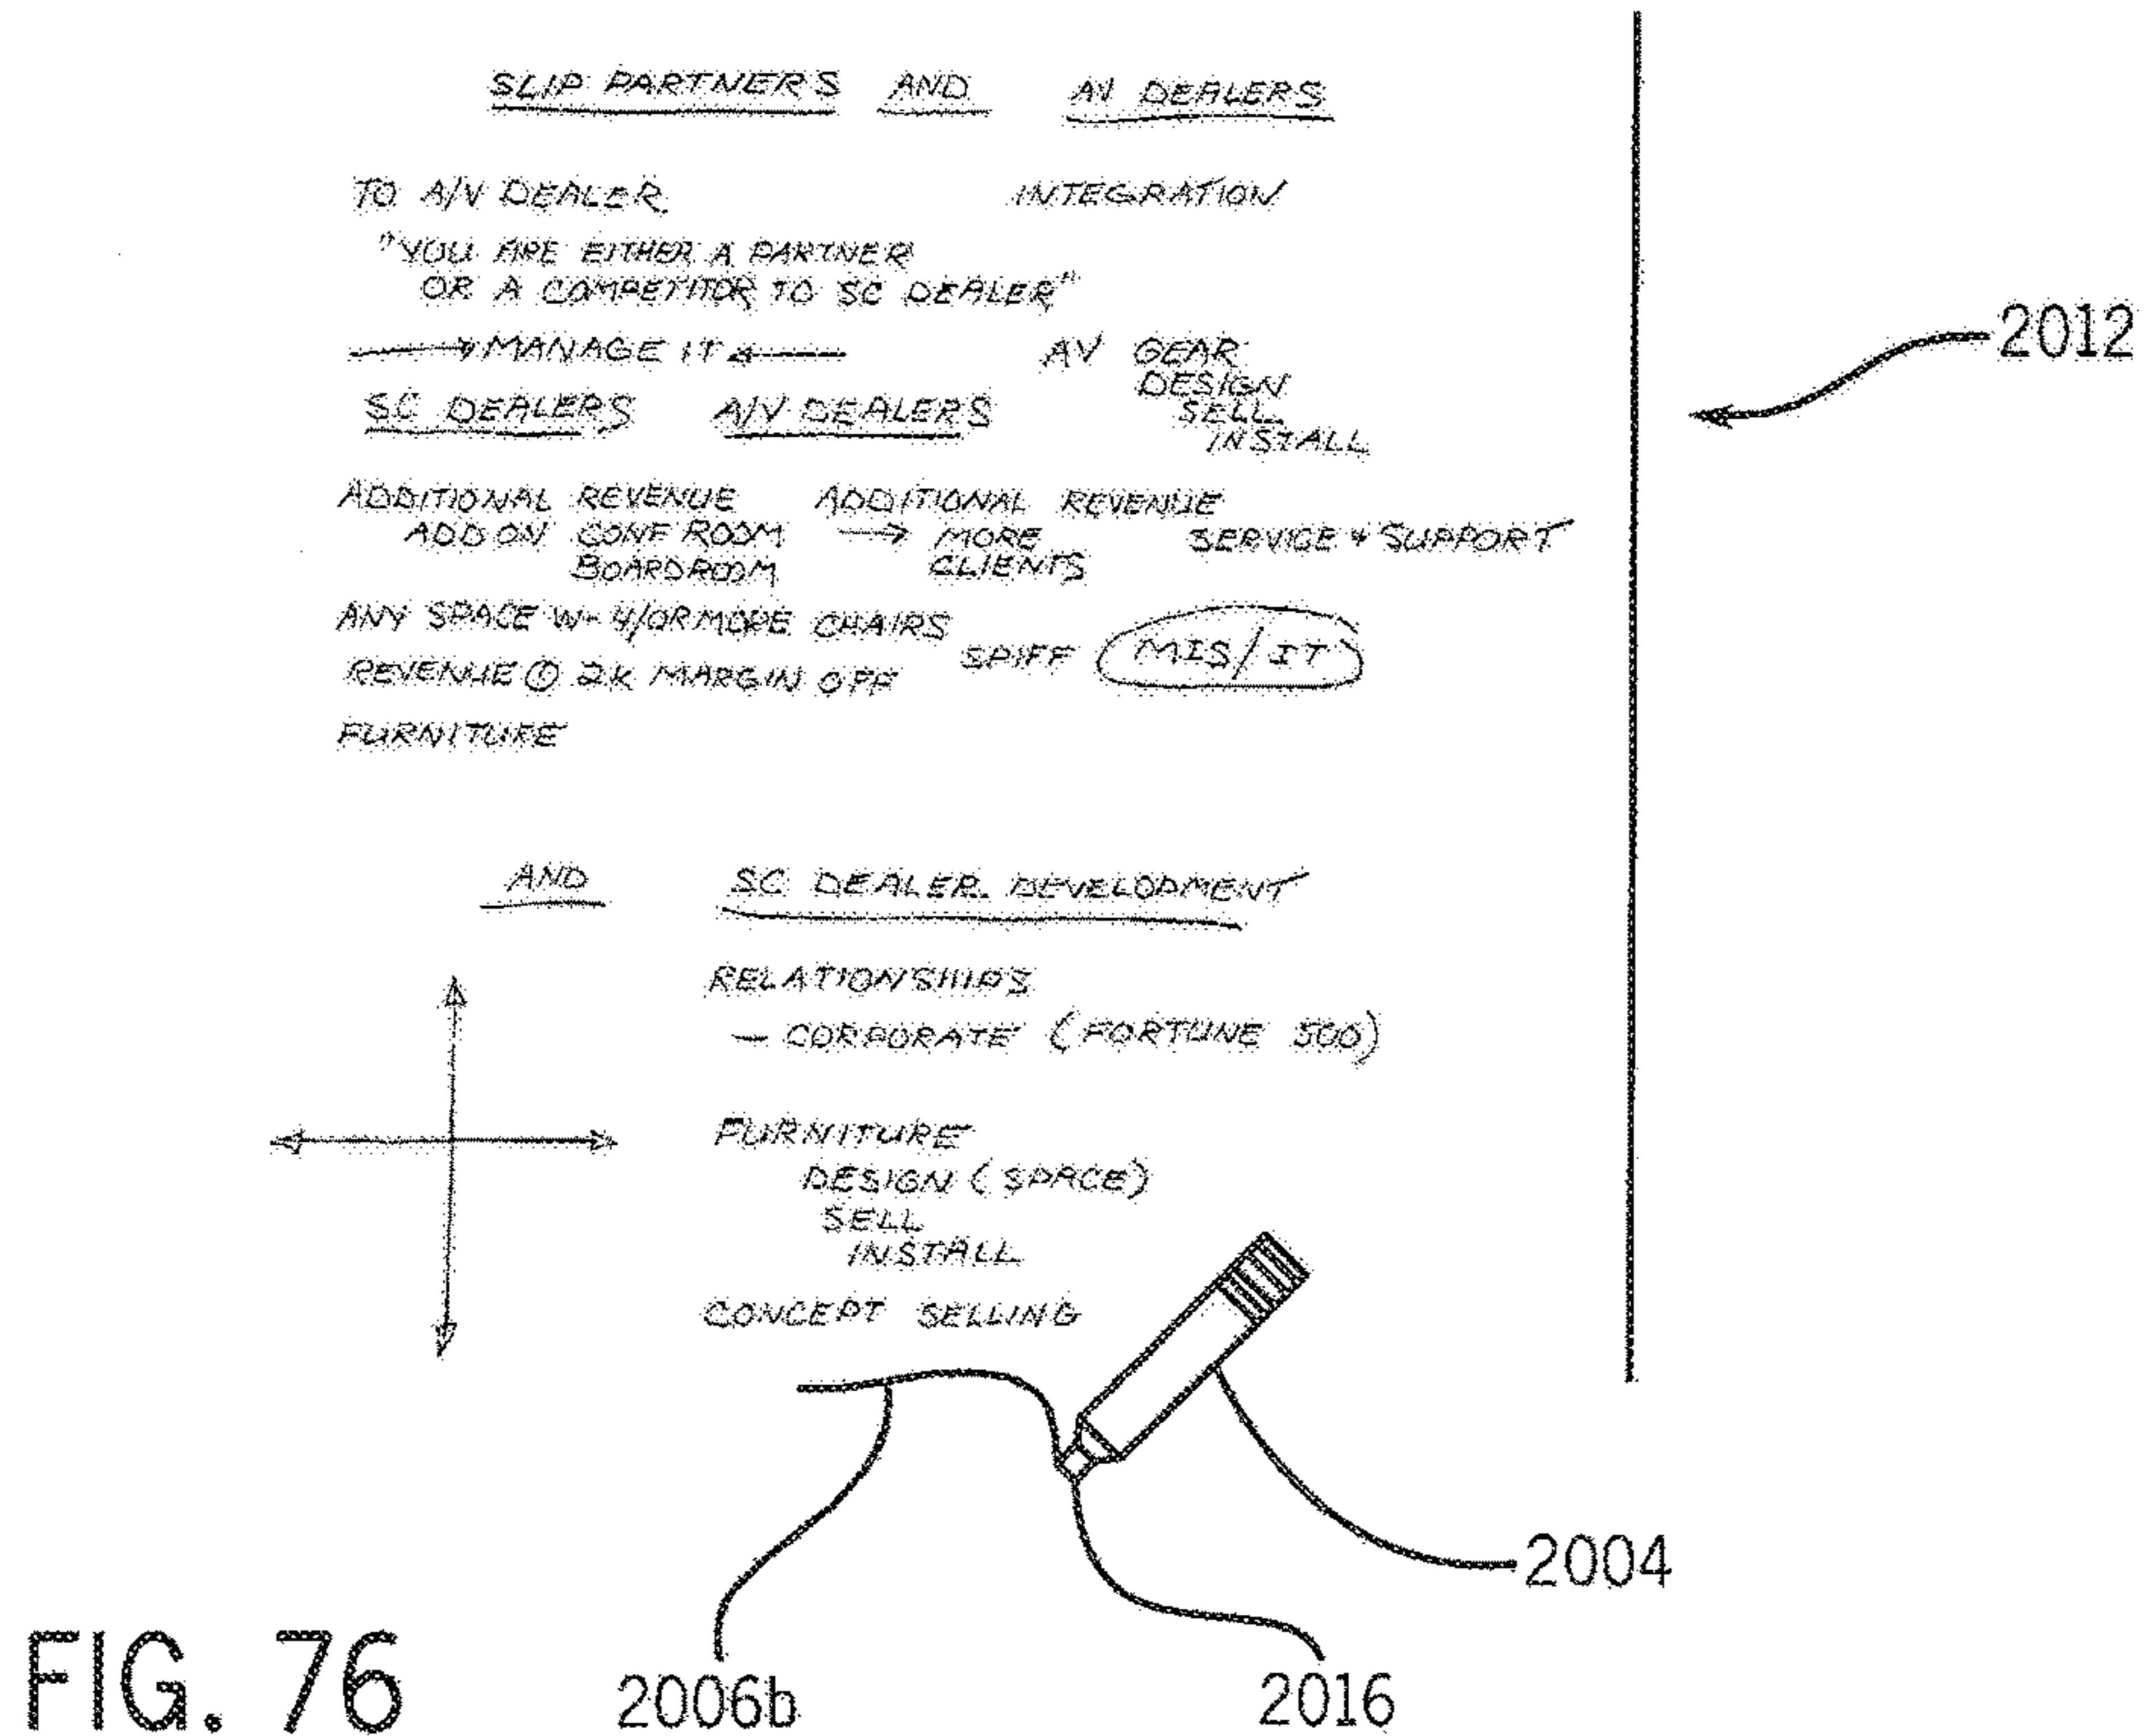 SLIP PARTNERS AND AV DEALERS
TO A/V DEALER INTEGRATION
"YOU ARE EITHER A PARTNER
OR A COMPETITOR TO SC DEALER"
MANAGE IT
AV GEAR
DESIGN
SELL
INSTALL
SC DEALERS A/V DEALERS
ADDITIONAL REVENUE
ADD ON CONF ROOM
BOARDROOM
ADDITIONAL REVENUE
→ MORE
CLIENTS
SERVICE + SUPPORT
ANY SPACE W- 4/OR MORE CHAIRS
SPIFF MIS/IT
REVENUE @ 2K MARGIN OFF
FURNITURE
AND SC DEALER DEVELOPMENT
RELATIONSHIPS
— CORPORATE (FORTUNE 500)
FURNITURE
DESIGN (SPACE)
SELL
INSTALL
CONCEPT SELLING
2012
2004
2006b
2016
FIG. 76